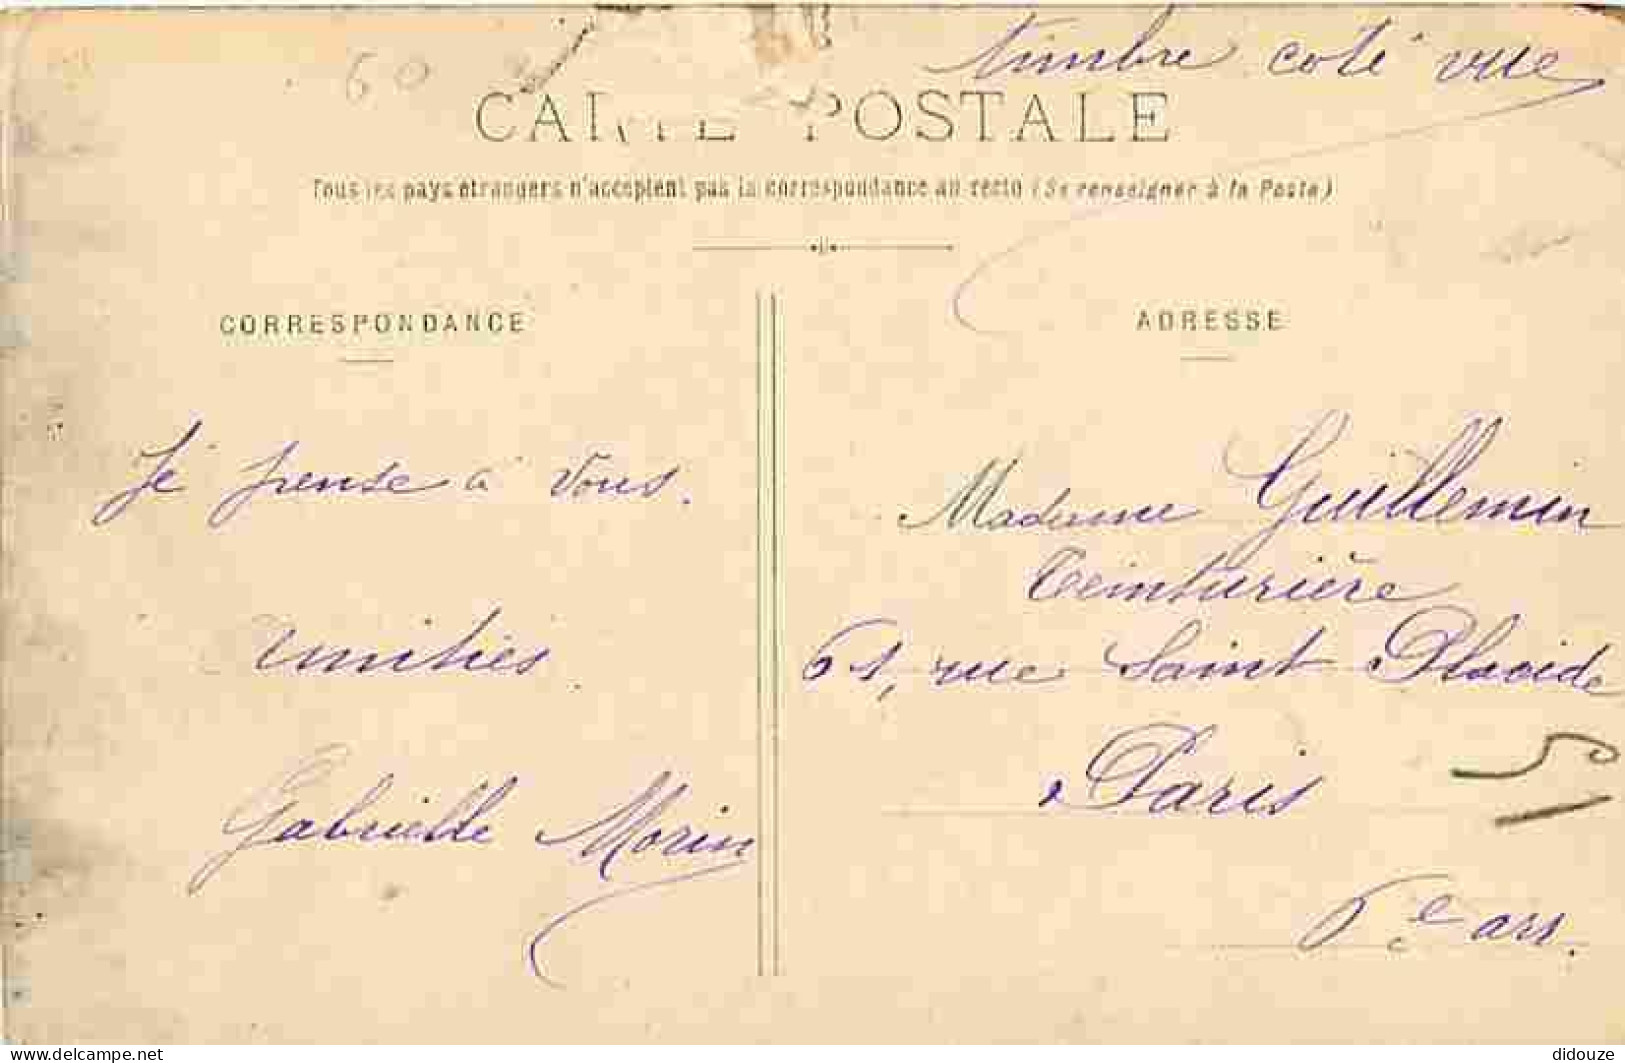 60
timbre coté vue
CARTE POSTALE
Tous les pays étrangers n'acceptent pas la correspondance au recto (Se renseigner à la Poste)
CORRESPONDANCE
ADRESSE
Je pense à vous.
amitiés
Gabrielle Morin
Madame Guillemin
Teinturière
61, rue Saint Placide
Paris
51
6.e arr.
https://www.delcampe.net
didouze